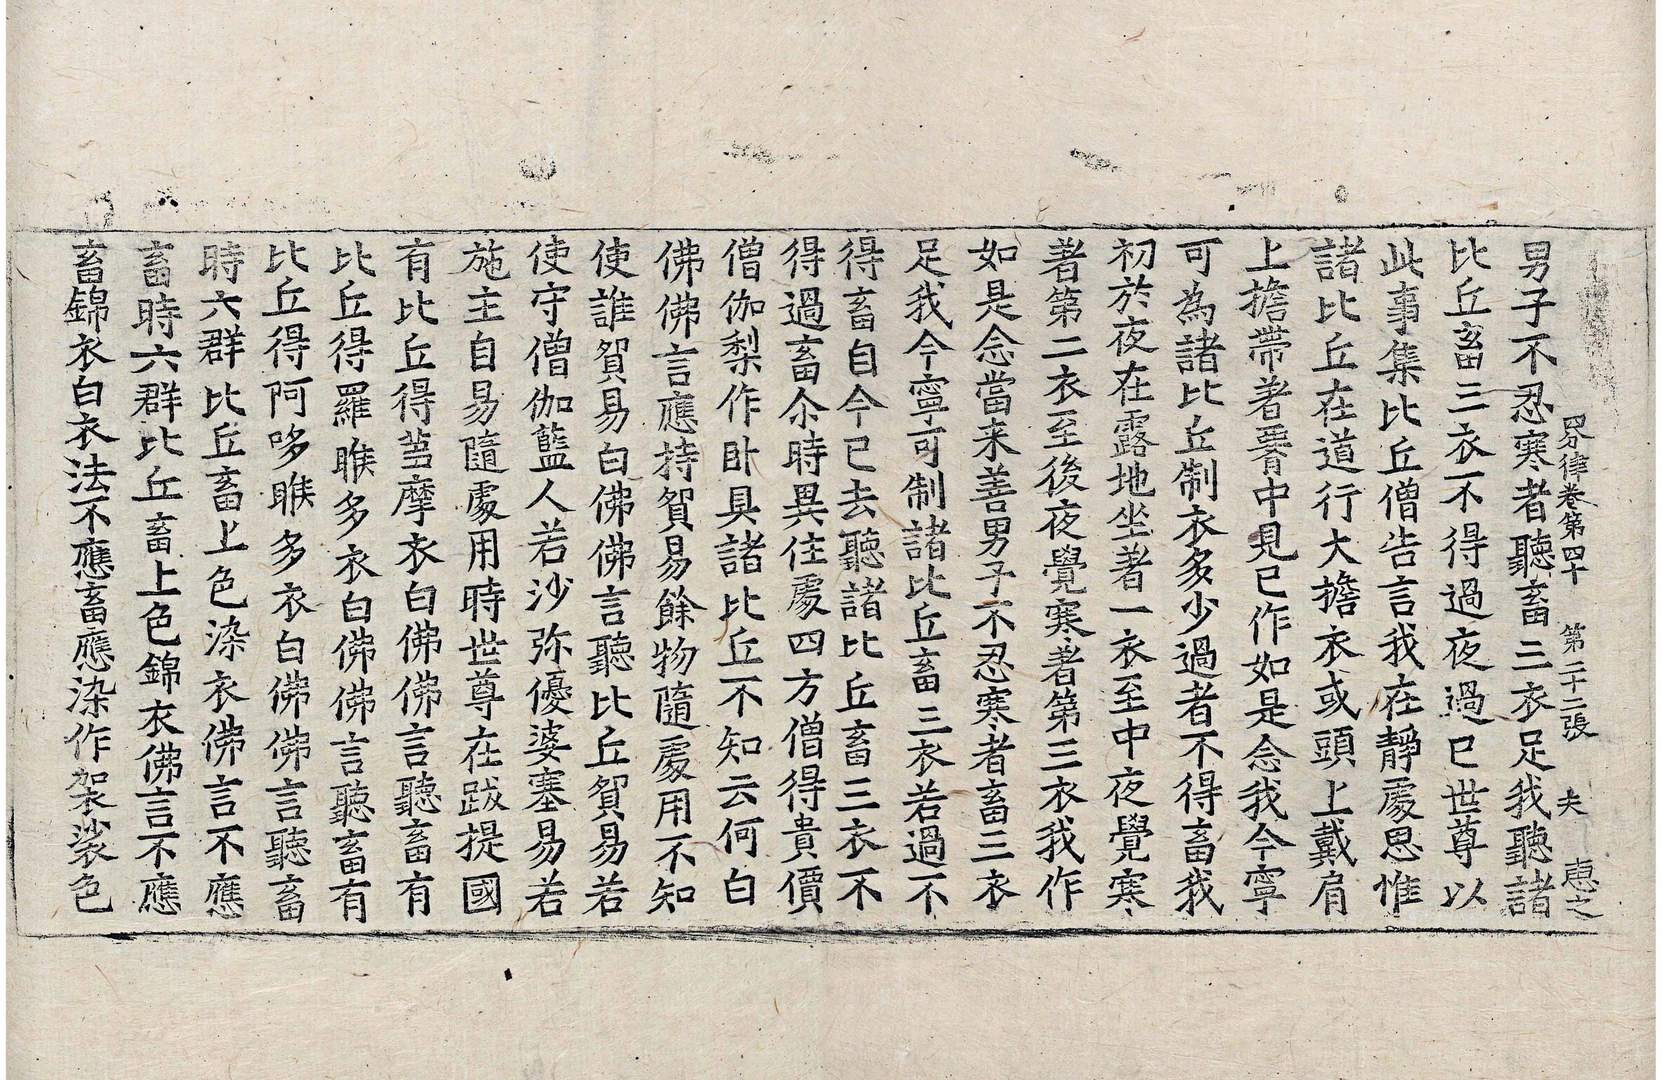 四分律卷第四十 第二十二張 夫 惠之
男子不忍寒者聽畜三衣足我聽諸
比丘畜三衣不得過夜過已世尊以
此事集比丘僧告言我在靜處思惟
諸比丘在道行大擔衣或頭上戴肩
上擔帶著䏚中見已作如是念我今寧
可為諸比丘制衣多少過者不得畜我
初於夜在露地坐著一衣至中夜覺寒
著第二衣至後夜覺寒著第三衣我作
如是念當来善男子不忍寒者畜三衣
足我今寧可制諸比丘畜三衣若過不
得畜自今已去聽諸比丘畜三衣不
得過畜尒時異住處四方僧得貴價
僧伽梨作卧具諸比丘不知云何白
佛佛言應持貿易餘物隨處用不知
使誰貿易白佛佛言聽比丘貿易若
使守僧伽藍人若沙弥優婆塞易若
施主自易隨處用時世尊在跋提國
有比丘得芻摩衣白佛佛言聽畜有
比丘得羅睺多衣白佛佛言聽畜有
比丘得阿哆睺多衣白佛佛言聽畜
時六群比丘畜上色染衣佛言不應
畜時六群比丘畜上色錦衣佛言不應
畜錦衣白衣法不應畜應染作袈裟色